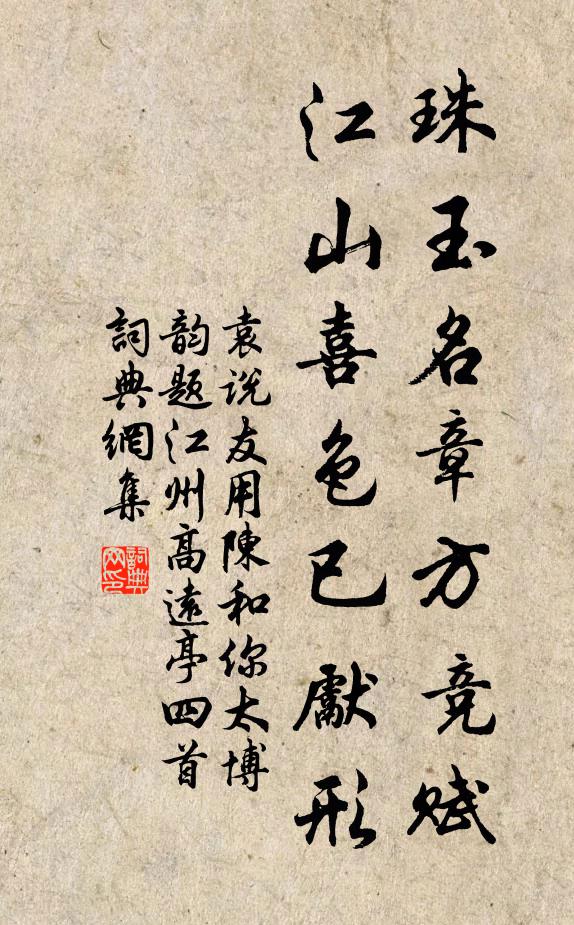 珠玉名章方竞赋
江山喜色已獻形
袁说友用陳和你太博
韵题江州高遠亭四首
詞典網集
詞典网印